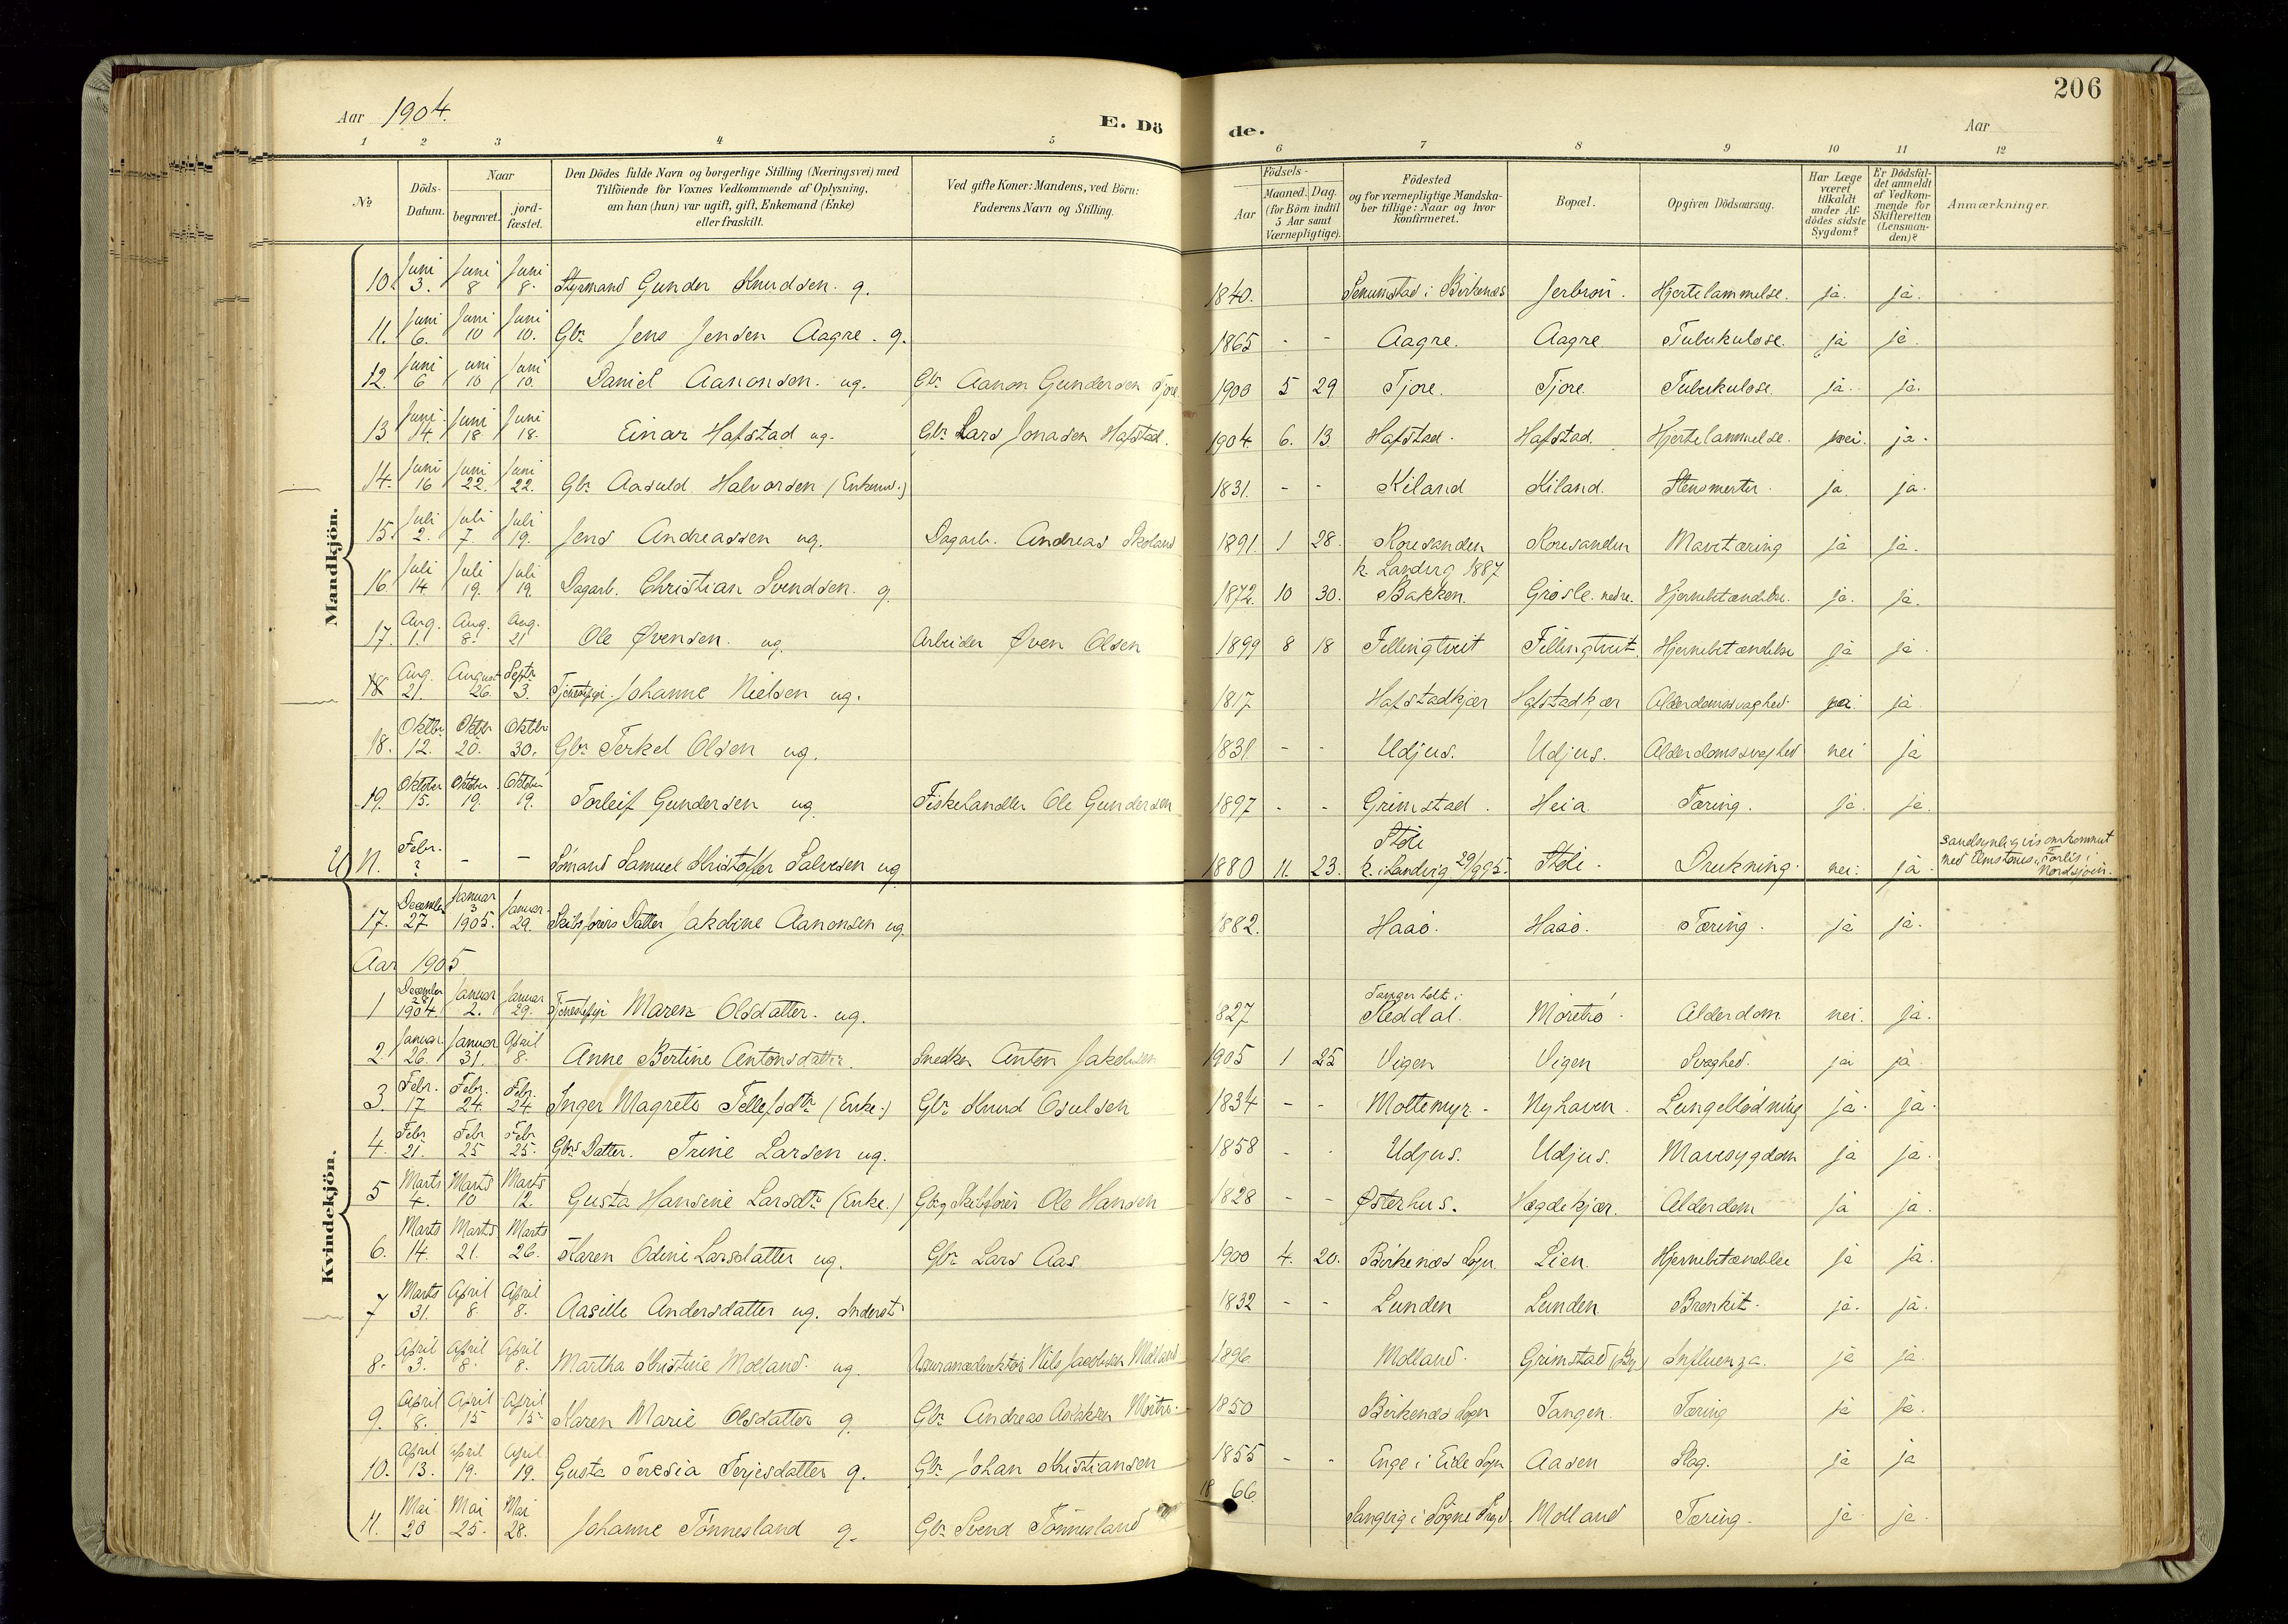 206
Aar 1904.
E. Dö
de.
Aar
1 2 3 4 5 6 7 8 9 10 11 12
No
Döds-Datum.
Naar
begravet.
jord-fæstet.
Den Dödes fulde Navn og borgerlige Stilling (Næringsvei) med
Tilföiende for Voxnes Vedkommende af Oplysning,
om han (hun) var ugift, gift, Enkemand (Enke)
eller fraskilt.
Ved gifte Koner: Mandens, ved Börn:
Faderens Navn og Stilling.
Födsels-
Aar
Maaned. Dag.
(for Börn indtil
5 Aar samt
Værnepligtige).
Födested
og for værnepligtige Mandska-
ber tillige: Naar og hvor
konfirmeret.
Bopæl.
Opgiven Dödsaarsag.
Har Læge
været
tilkaldt
under Af-
dödes sidste
Sygdom?
Er Dödsfal-
det anmeldt
af Vedkom-
mende for
Skifteretten
(Lensman-
den)?
Anmærkninger.
Mandkjön.
10. Juni 3. Juni 8 Juni 8. Styrmand Gunder Knudsen. g. 1840. Senumstad i Birkenæs Hjertelammelse. ja. ja.
11. Juni 6. Juni 10 Juni 10. Gbr. Jens Jensen Aagre. g. 1865 - - Aagre. Aagre Tuberkulose. ja ja.
12. Juni 6 Juni 10 Juni 10. Daniel Aanonsen. ug. Gbr. Aanon Gundersen Tjore 1900 5 29 Tjore. Tjore. Tuberkulose. ja. ja.
13 Juni 14. Juni 18 Juni 18. Einar Hafstad ug. Gbr. Lars Jonasen Hafstad. 1904. 6. 13 Hafstad. Hafstad. Hjertelammelse. nei. ja.
14. Juni 16 Juni 22. Juni 22. Gbr. Aasuld Halvorsen (Enkem.) 1831. - - Kiland Kiland. Stensmerter. ja. ja.
15. Juli 2. Juli 7. Juli 19. Jens Andreassen ug. Dagarb. Andreas Skoland 1891. 1 28. Roresanden Roresanden Mavetæring ja ja.
16. Juli 14 Juli 19. Juli 19. Dagarb. Christian Svendsen. g. 1872. 10 30. k. Landvig 1887 Bakken. Grøsle. nedre. Hjernebetændelse. ja. ja.
17. Aug. 1. Aug. 8. Aug. 21 Ole Øvensen. ug. Arbeider Øven Olsen 1899 8 18 Fellingtveit Fellingtveit. Hjernebetændelse ja ja.
18 Aug. 21. August 26. Septr. 3. Johanne Nielsen ug. 1817 Hafstadkjær Hafstadkjær Alderdomssvaghed. ja
18. Oktbr. 12. Oktbr 20. Oktbr 30. Gbr. Terkel Olsen ug. 1831. - - Udjus. Udjus. Alderdomssvaghed nei ja
19. Oktober 15. Oktober 19. Oktober 19. Torleif Gundersen ug. Fiskehandler Ole Gundersen 1897 - - Grimstad. Heia. Tæring. ja. ja.
U) N. Febr. ? - - Sömand Samuel Kristoffer Salvesen ug. 1880 11. 23. Støle k. i Landvig 29/9 95. Støle. Drukning. nei. ja. sandsynligvis omkommet
ved Forlis i
Nordsjöen.
Kvindekjön.
17. December 27 Januar 3 1905. Januar 29. Skibsförers Datter Jakobine Aanonsen ug. 1882. Haaö. Haaö. Tæring. ja ja.
Aar 1905
1 December 28 1904. Januar 2. Januar 29. Maren Olsdatter. ug. 1827 i Reddal. Möretrö. Alderdom nei. ja.
2. Januar 26. Januar 31. April 8. Anne Bertine Antonsdatter. Snedker Anton Jakobsen 1905 1 25 Vigen Vigen Svaghed. ja ja.
3. Febr. 17 Febr. 24. Febr. 24 Inger Magrete Tellefsdtr (Enke.) Gbr. Knud Osulsen 1834 - - Moltemyr. - Nyhaven. Lungeblödning ja. ja.
4. Febr 21. Febr. 25 Febr. 25. Gbrs Datter. Trine Larsen ug. 1858 - - Udjus. Udjus. Mavesygdom ja ja.
5 Marts 4. Marts 10 Marts 12. Gusta Hansine Larsdtr (Enke.) Gbr. og Skibsförer Ole Hansen 1828 - - Østerhus. Hægdekjær. Alderdom ja ja.
6. Marts 14. Marts 21. Marts 26. Karen Odine Larsdatter ug. Gbr. Lars Aas 1900 4. 20. Birkenæs Sogn Lien. Hjernebetændelse ja ja.
7 Marts 31. April 8. April 8. Aasille Andersdatter ug. Inderst 1832 - - Lunden Lunden. ja. ja.
8. April 3. April 8. April 8. Martha Kristine Molland. ug. Assurancedirektör Nils Jacobsen Molland 1896 Molland. Grimstad (By) Influenza. ja ja.
9. April 8. April 15 April 15 Karen Marie Olsdatter g. Gbr. Andreas Aslaksen 1850 Birkenæs Sogn Tangen. Tæring ja ja.
10. April 13. April 19. April 19. Gusta Teresia Terjesdatter g. Gbr. Johan Kristiansen 1855 - - Enge i Eide Sogn Aasen Slag. ja ja
11. Mai 20 Mai 25. Mai 28. Johanne Tönnesland g. Gbr. Svend Tönnesland 1866. i Sögne Molland Tæring. ja. ja.